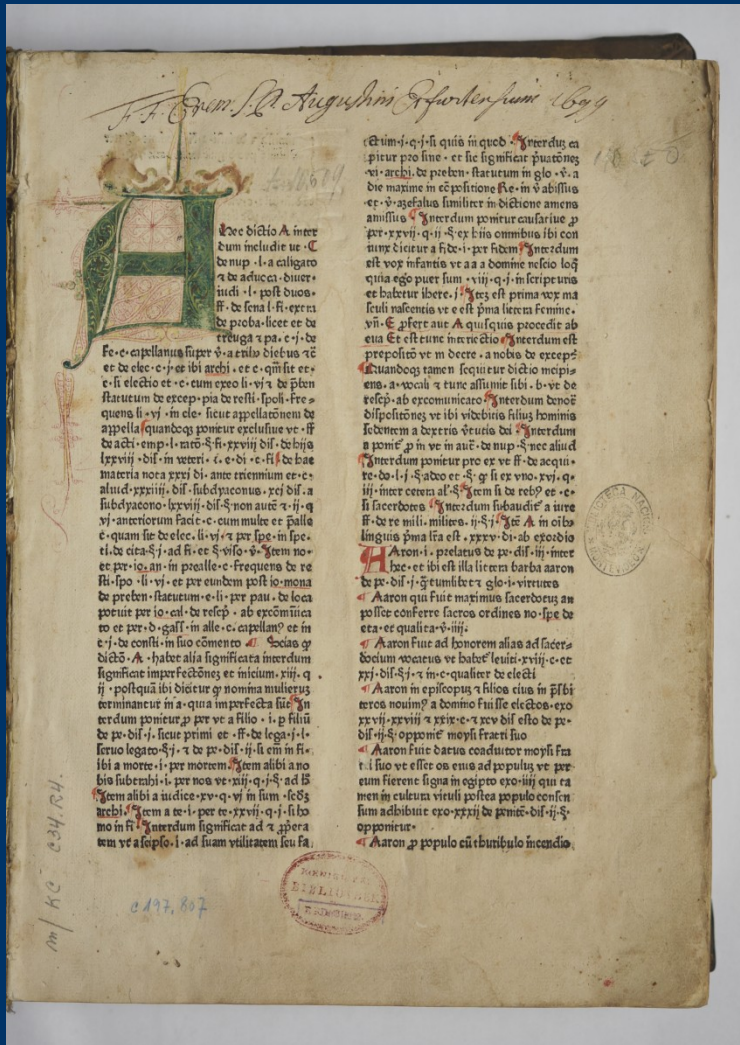 F. F. Erem. S. P. Augustini Erfurtensium 1699
Hec dictio A inter
dum includit ut · C
de nup · l · a caligato
⁊ de aduoca · diuer·
iudi · l · post duos·
ff · de sena l · fi · extra
de proba · licet et de
treuga ⁊ pa · c · j · de
fe · c · capellanus super ꝟ · a tribꝰ diebus ⁊c̄
et de elec · c · j · et ibi archi · et c · qm̄ sit et ·
c · si electio et · c · cum exeo li · vj · ⁊ de p̄ben
statutum de excep · pia de resti · spoli · fre ·
quens li · vj · in cle · sicut appellatōnem de
appella quandoqꝫ ponitur exclusiue vt · ff
de acti · emp · l · ratō · §· fi · xxviii dis · de hijs
lxxviii · dis · in veteri · i · e · di · c · fi de hac
materia nota xxxj di · ante triennium et · c ·
aliud · xxxiiij · dis · subdyaconus · xcj dis · a
subdyacono · lxxviij dis · §· non autē ⁊ · ij · q
vj · anteriorum facit · c · cum multe et p̄alle
c · quam sit de elec · li · vj · ⁊ per spe · in spe ·
ti · de cita · §· j · ad fi · et §· viso · ꝟ · Item no ·
et per · io · an · in prealle · c · frequens de re
sti · spo · li · vj · et per eundem post io · mona
de preben · statutum · e · li · per pau · de loca
potuit per io · cal · de rescꝑ · ab excōmūica
to et per · d · gass · in alle · c · capellanꝰ et in
c · j · de consti · in suo cōmento · Scias ꝙ
dictō · A · habet alia significata interdum
significat imperfectōnez et inicium · xiij · q ·
ij · postquā ibi dicitur ꝙ nomina mulieruꝫ
terminantur in a · quia imperfecta sūt In
terdum ponitur ꝓ per vt a filio · i · ꝑ filiū
de pe · dis · j · sicut primi et · ff · de lega · j · l ·
seruo legato · §· j · ⁊ de pe · dis · ij · si em̄ in fi ·
ibi a morte · i · per mortem Item alibi a no
bis subtrahi · i · per nos vt · xij · q · j · §· ad h̄
Item alibi a iudice · xv · q · vj in sum · scdꝫ
archi · Item a te · i · per te · xxvij · q · j · si ho
mo in fi Interdum significat ad ⁊ ꝓpeta
tem vt a seipso · i · ad suam vtilitatem seu fa
ctum · j · q · j · si quis in quod · Interduꝫ ca
pitur pro sine · et sic significat p̄uatōneꝫ
vi · archi · de preben · statutum in glo · ꝟ · a
die maxime in cōpositione Re · in ꝟ abissus
et · ꝟ · azefalus similiter in dictione amens
amissus Interdum ponitur causatiue ꝓ
per · xxvij · q · ij · §· ex hiis omnibus ibi con
iunx dicitur a fide · i · per fidem Interdum
est vox infantis vt a a a domine nescio loq̄
quia ego puer sum · viij · q · j · in scripturis
et habetur ihere · j · Itez est prima vox ma
sculi nascentis vt e est p̄ma litera femine ·
vn̄ · E ꝓfert aut A quisquis procedit ab
eua Et est tunc interiectio Interdum est
prepositō vt in decre · a nobis de except̄
Quandoqꝫ tamen sequitur dictio incipi·
ens · a · vocali ⁊ tunc assumit sibi · b · vt de
rescꝑ · ab excomunicato Interdum denot̄
dispositōnez vt ibi videbitis filiuꝫ hominis
sedentem a dextris ꝟtutis dei Interdum
a ponit̄ ꝓ in vt in autē · de nup · §· nec aliud
Interdum ponitur pro ex vt ff · de acqui ·
re · do · l · j · §· adeo et · §· ꝙ si ex vno · xvj · q ·
iij · inter cetera al · §· Item si de rebꝰ et · c ·
si sacerdotes Interdum subaudit̄ a iure
ff · de re mili · milites · ij · §· j · Itē A in oībꝰ
linguis p̄ma lr̄a est · xxxv · di · ab exordio
AAron · i · prelatus de pe · dis · iij · inter
hec · et ibi est illa litera barba aaron
de pe · dis · j · §· quemlibet ⁊ glo · i · virtutes
Aaron qui fuit maximus sacerdotuꝫ an
posset conferre sacros ordines no · spe de
eta · et qualita · ꝟ · iiij ·
Aaron fuit ad honorem alias ad sacer·
docium vocatus vt habet̄ leuiti · xviij · c · et
xxj · dis · §· j · ⁊ in · c · qualiter de electi
Aaron in episcopuꝫ ⁊ filios eius in p̄sbi
teros nouimꝰ a domino fuisse electos · exo
xxvij · xxviij ⁊ xxix · c · ⁊ xcv dis esto de pe ·
dis · ij · §· opponit̄ moysi fratri suo
Aaron fuit datus coadiutor moysi fra
tri suo vt esset os eius ad populuꝫ vt per
eum fierent signa in egipto exo · iiij qui ta
men in cultura vituli postea populo consen
sum adhibuit exo · xxxij de penitē · dis · ij · §·
opponitur ·
Aaron ꝓ populo cū thuribulo incendio
m/ KC C34.R4.
c197,807
BIBLIOTHEK